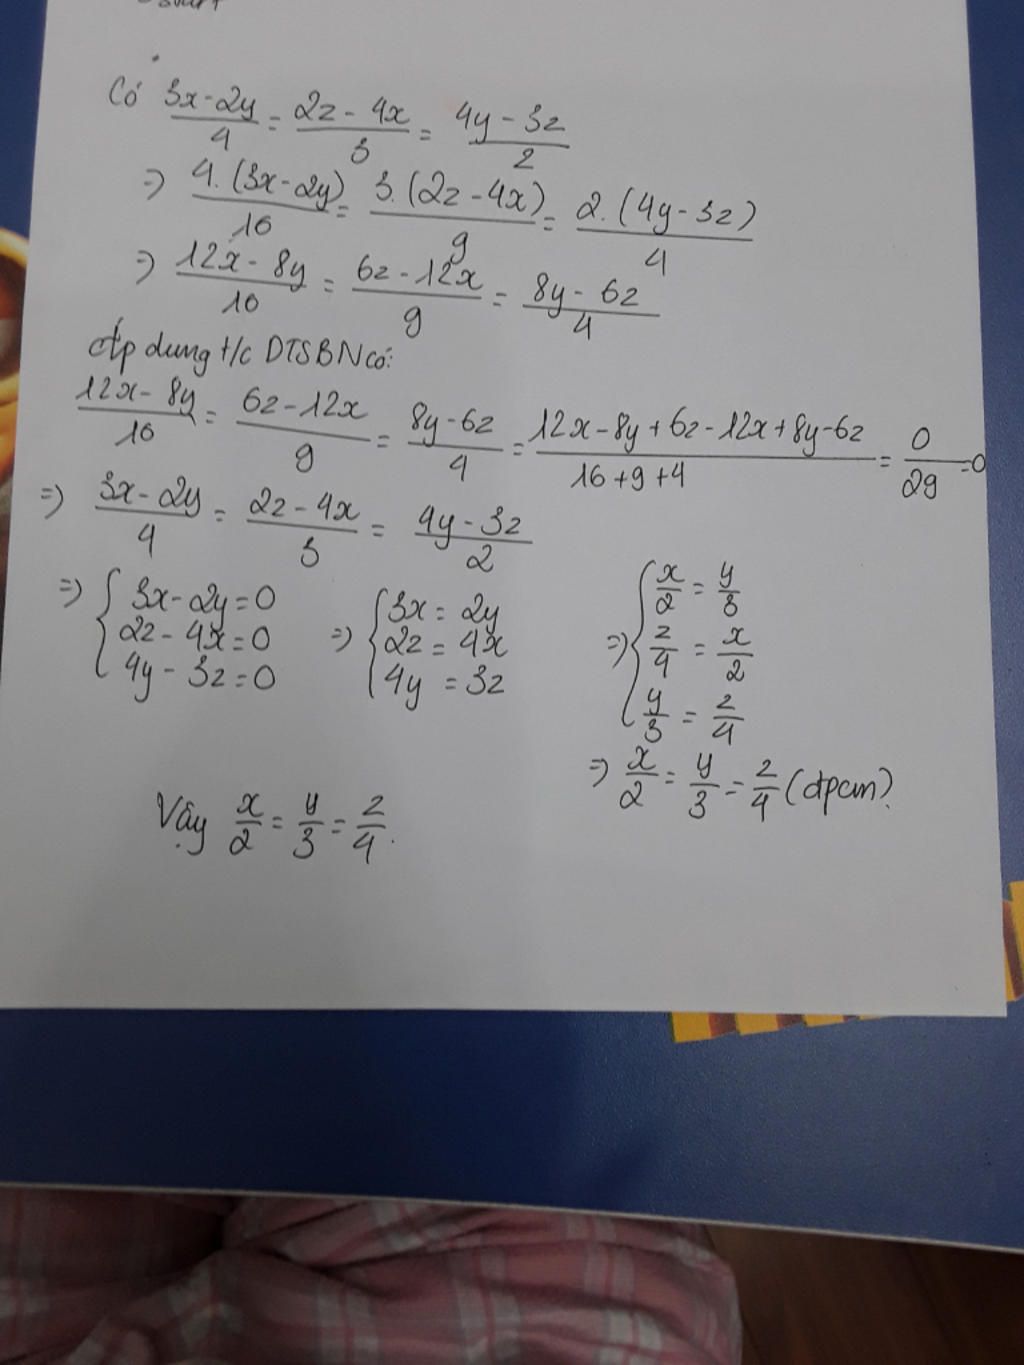 Có (3x-2y)/4 = (2z-4x)/3 = (4y-3z)/2
=> 4.(3x-2y)/16 = 3.(2z-4x)/9 = 2.(4y-3z)/4
=> (12x-8y)/16 = (6z-12x)/9 = (8y-6z)/4
Áp dung t/c DTSBN có:
(12x-8y)/16 = (6z-12x)/9 = (8y-6z)/4 = (12x-8y+6z-12x+8y-6z)/(16+9+4) = 0/29 = 0
=> (3x-2y)/4 = (2z-4x)/3 = (4y-3z)/2
=> { 3x-2y=0 => { 3x = 2y => { x/2 = y/3
2z-4x=0 2z = 4x z/4 = x/2
4y-3z=0 4y = 3z y/3 = z/4
=> x/2 = y/3 = z/4 (đpcm).
Vậy x/2 = y/3 = z/4.